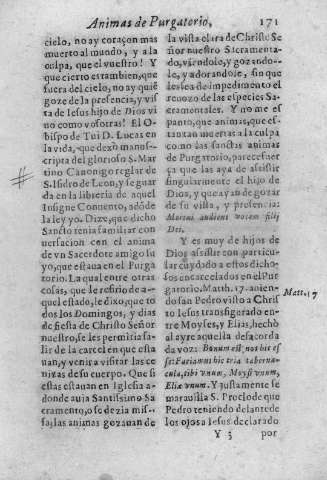 Animas de Purgatorio, 171
cielo, no ay coraçon mas
muerto al mundo, y a la
culpa, que el vuestro! Y
que cierto es tambien, que
fuera del cielo, no ay quiẽ
goze de la presencia, y vis
ta de Iesus hijo de Dios vi
no como vosotras! El O-
bispo de Tui D. Lucas en
la vida, que dexò manus-
cripta del glorioso S. Mar
tino Canonigo reglar de
S. Isidro de Leon, y se guar
da en la libreria de aquel
Insigne Conuento, adõ-
de la ley yo. Dize, que dicho
Sancto tenia familiar con
uersacion con el anima de
vn Sacerdote amigo su
yo, que estaua en el Purga
torio. La qual entre otras
cosas, que le refirio de a-
quel estado, le dixo, que to
dos los Domingos, y dias
de fiesta de Christo Señor
nuestro, se les permitia sa
lir de la carcel en que esta
uan, y venir a visitar las ce
nizas de su cuerpo. Que si
estas estauan en Iglesia a-
donde auia Santissimo Sa-
cramento, o se dezia mis-
sa, las animas gozauan de
la vista clara de Christo Se
ñor nuestro Sacramenta-
do, viẽndole, y gozando-
le, y adorandole, sin que
les sea de impedimento el
reuozo de las especies Sa-
cramentales. Y no me es
panto, que animas, que es-
tan tan muertas a la culpa
como las sanctas animas
de Purgatorio, parece fuer
ça que las aya de assistir
singularmente el hijo de
Dios, y que ayan de gozar
de su vista, y presencia:
Mortui audient vocem filij
Dei.
Y es muy de hijos de
Dios assistir con particu-
lar cuydado a estos dicho-
sos encarcelados en el Pur
gatorio. Matth. 17. auien-
do san Pedro visto a Chris
to Iesus transfigurado en-
tre Moyses, y Elias, hechò
al ayre aquella desacorda
da voz: Bonum est nos hic es
se: Faciamus hic tria taberna-
cula, tibi vnum, Moysi vnum,
Eliæ vnum. Y justamente se
marauilla S. Proclo de que
Pedro teniendo delante de
los ojos a Iesus declarado
Y 3 por
Matt. 17